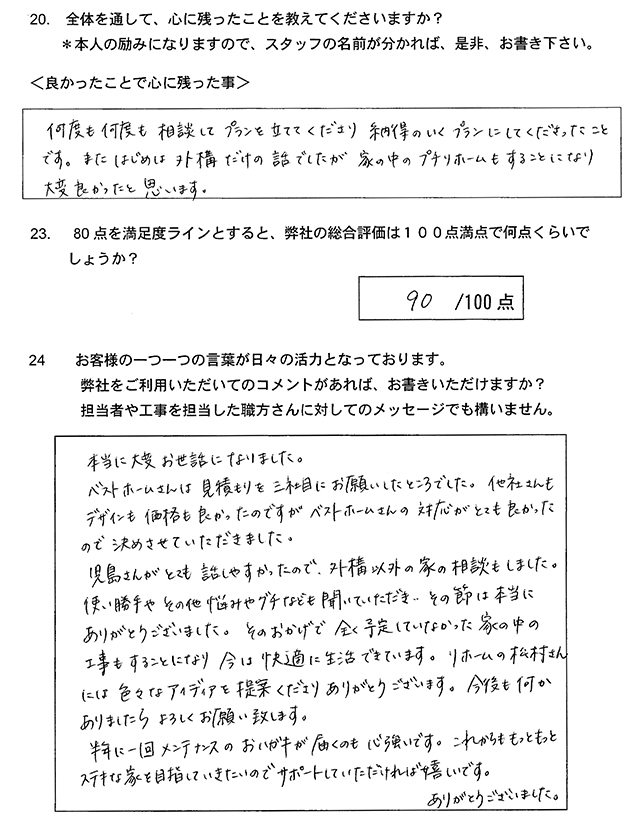 20. 全体を通して、心に残ったことを教えてくださいますか？
＊本人の励みになりますので、スタッフの名前が分かれば、是非、お書き下さい。
＜良かったことで心に残った事＞
何度も何度も 相談して プランを立ててくださり 納得のいくプランにしてくださったこと
です。またはじめは 外構だけの 話でしたが 家の中の プチリホームもすることになり
大変良かったと 思います。
23. 80点を満足度ラインとすると、弊社の総合評価は１００点満点で何点くらいで
しょうか？
90 /100点
24 お客様の一つ一つの言葉が日々の活力となっております。
弊社をご利用いただいてのコメントがあれば、お書きいただけますか？
担当者や工事を担当した職方さんに対してのメッセージでも構いません。
本当に大変 お世話になりました。
ベストホームさんは 見積もりを 三社目に お願いしたところでした。他社さんも
デザインも 価格も 良かったのですが ベストホームさんの 対応がとても良かった
ので 決めさせていただきました。
児島さんが とても 話しやすかったので、外構以外の家の相談もしました。
使い勝手や その他 悩みやグチなども 聞いていただき‥ その節は 本当に
ありがとうございました。そのおかげで 全く予定していなかった 家の中の
工事もすることになり 今は 快適に 生活できています。リホームの松村さん
には 色々なアイディアを 提案くださり ありがとうございます。今後も何か
ありましたら よろしくお願い致します。
半年に一回 メンテナンスの おハガキが 届くのも 心強いです。これからももっともっと
ステキな家を目指していきたいので サポートしていただければ 嬉しいです。
ありがとうございました。